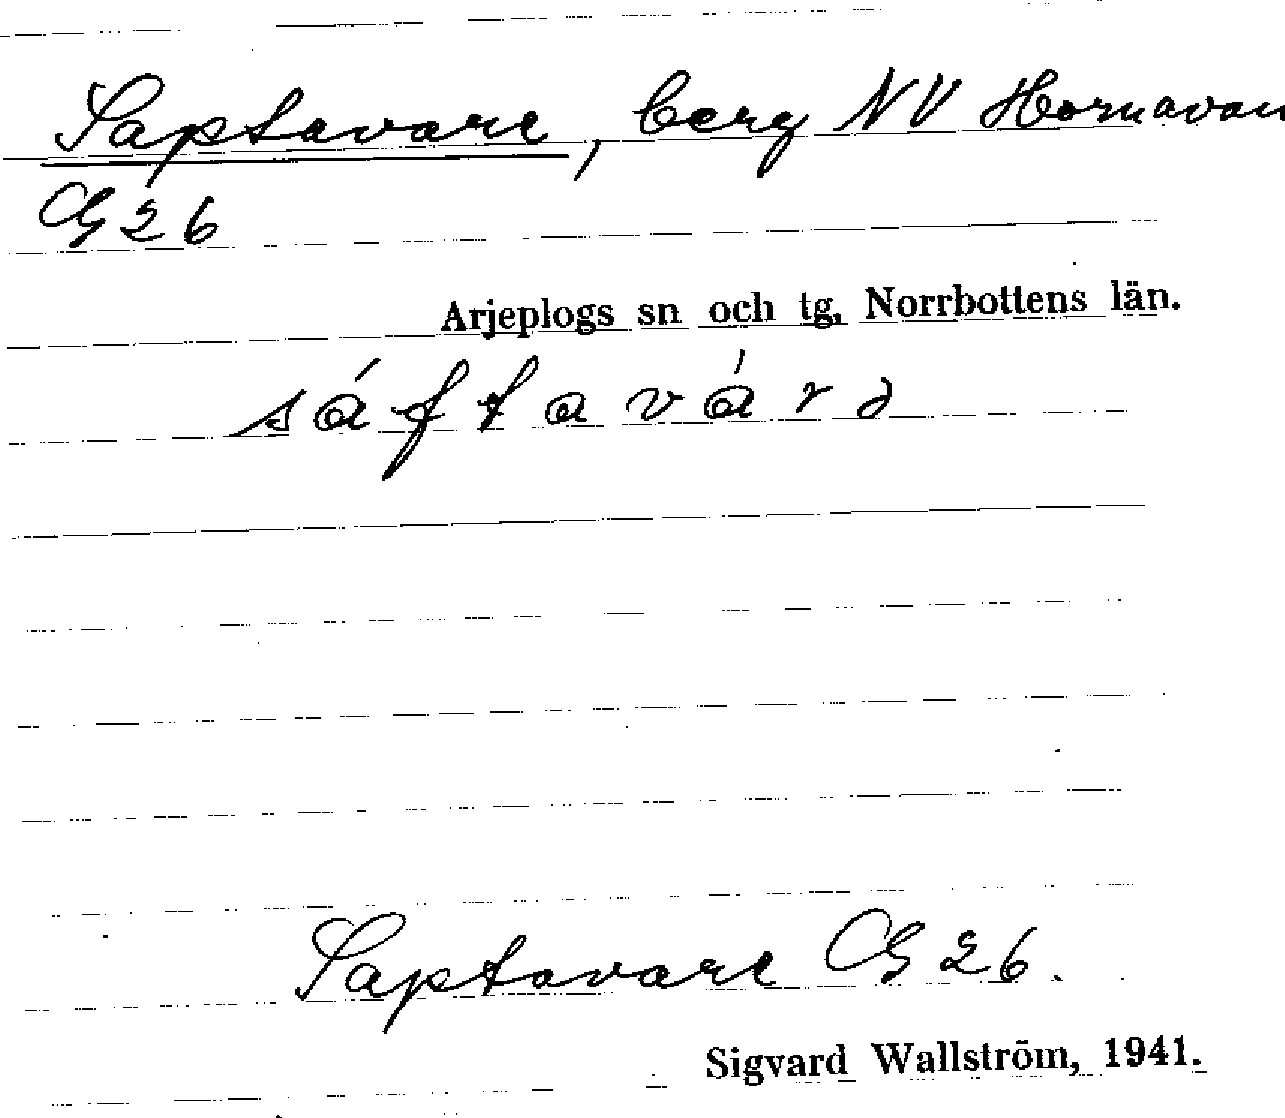 Saptavare, berg NV Hornavan
G 26
Arjeplogs sn och tg, Norrbottens län.
sáftavárə
Saptavare G 26.
Sigvard Wallström, 1941.